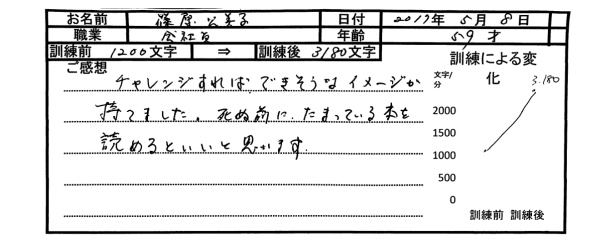 お名前 篠原 公美子 日付 2017年 5月 8日
職業 会社員 年齢 59才
訓練前 1200文字 ⇒ 訓練後 3180文字
ご感想
チャレンジすれば できそうな イメージが
持てました。死ぬ前に、たまっている本を
読めるといいと思います。
訓練による変
化
文字/
分
3.180
2000
1500
1000
500
0
訓練前 訓練後